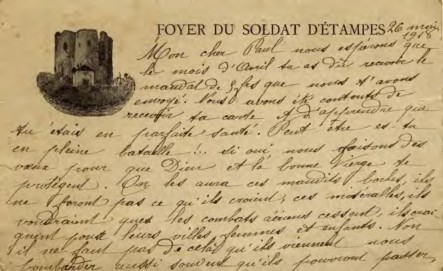 FOYER DU SOLDAT D'ÉTAMPES 26 mai
1918
Mon cher Paul nous espérons que
le mois d'Avril tu as dû recevoir le
mandat de 5 frs que nous t'avons
envoyé. Nous avons été contents de
recevoir ta carte et d'apprendre que
tu étais en parfaite santé. Peut être es tu
en pleine bataille !.. si oui nous faisons des
vœux pour que Dieu et la bonne Vierge te
protègent. On les aura ces maudits boches, ils
ne feront pas ce qu'ils croient; ces misérables, ils
voudraient que les combats aériens cessent, ils
pour leurs villes, femmes et enfants. Non
il ne faut pas de cela, qu'ils viennent nous
bombarder aussi souvent qu'ils pourront passer